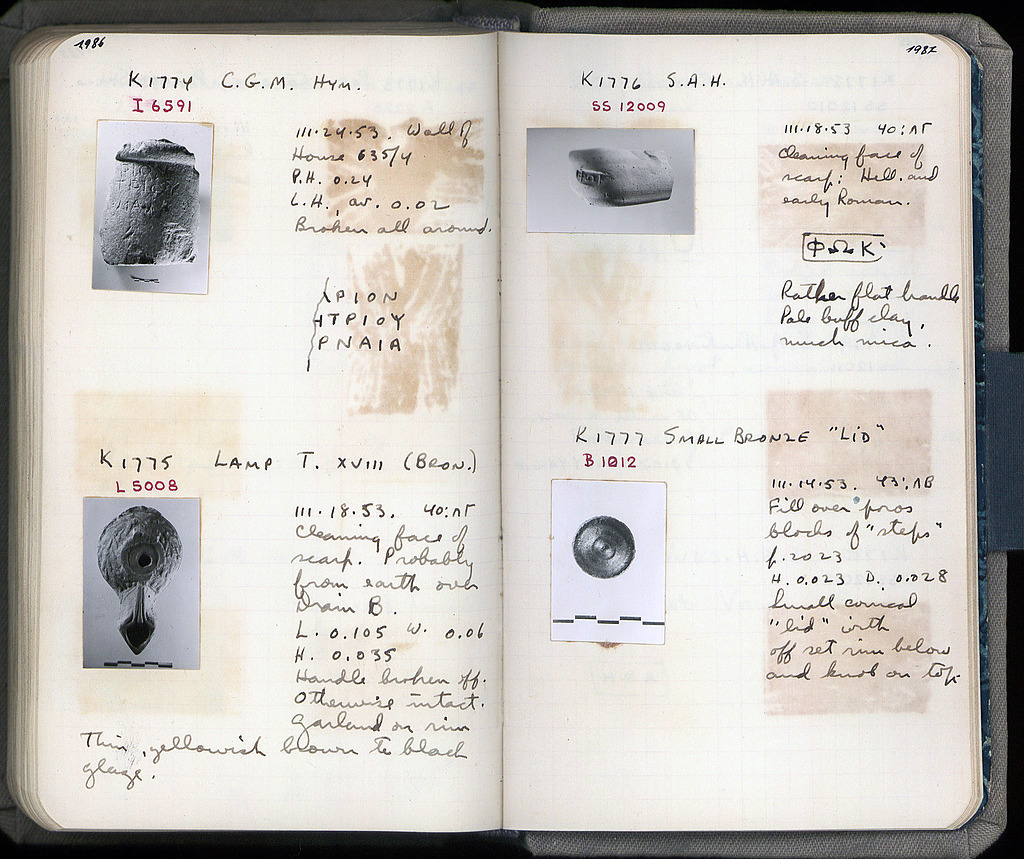 1986
K1774 C.G.M. Hym.
I 6591
III.24.53. Wall of
House 635/4
P.H. 0.24
L.H., av. 0.02
Broken all around.
ΛΡΙΟΝ
ΗΤΡΙΟΥ
ΡΝΑΙΑ
K1775 LAMP T. XVIII (BRON.)
L 5008
III.18.53. 40:ΛΓ
Cleaning face of
scarp. Probably
from earth over
Drain B.
L. 0.105 W. 0.06
H. 0.035
Handle broken off.
Otherwise intact.
Garland on rim
Thin, yellowish brown to black
glaze.
1987
K1776 S.A.H.
SS 12009
III.18.53 40:ΛΓ
Cleaning face of
scarp: Hell. and
early Roman.
ΦΩΚ
Rather flat handle
Pale buff clay,
much mica.
K1777 SMALL BRONZE "LID"
B 1012
III.14.53. 43:ΛΒ
Fill over poros
blocks of "steps"
p. 2023
H. 0.023 D. 0.028
Small conical
"lid" with
off set rim below
and knob on top.